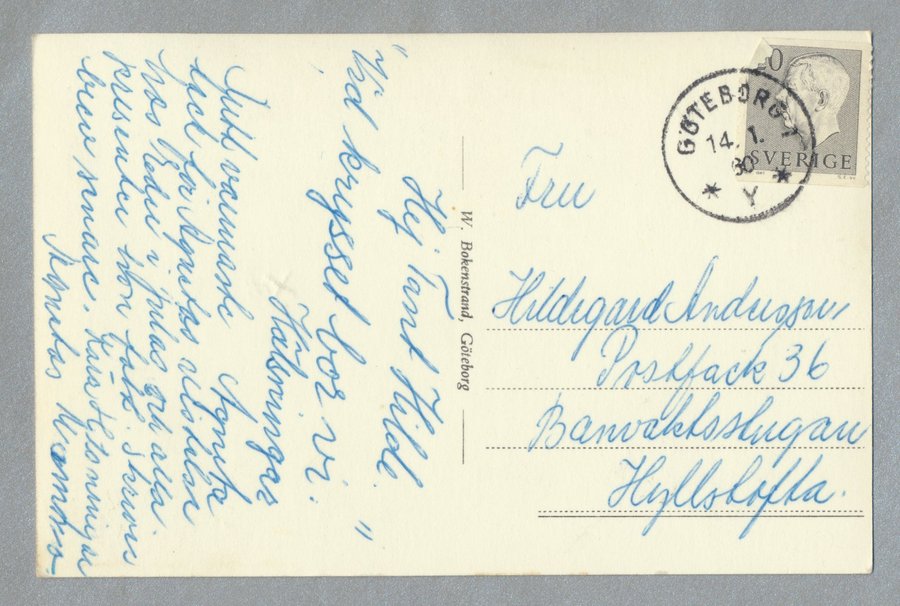 Hej Tant Hilde.
"Vid krysset bor vi."
x Hälsningar
Agneta
varmaste
tack för Agnetas vistelse
hos Eder i julas och alla
presenter hon fått. Skriver
brev senare. Kära Hälsningar
Agnetas Mamma
W. Bokenstrand, Göteborg
GÖTEBORG 1
14. 1.
60
* Y *
SVERIGE
Fru
Hildegard Andersson,
Postfack 36
Banvaktsstugan
Hyllstofta.